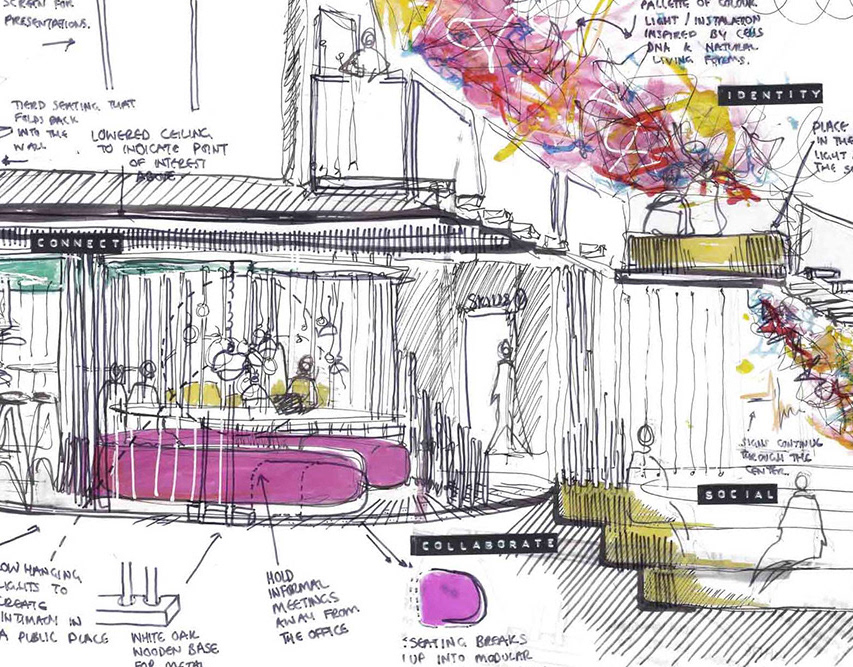 SCREEN FOR
PRESENTATIONS.
PALLETE OF COLOUR
LIGHT / INSTALATION
INSPIRED BY CELLS
DNA & NATURAL
LIVING FORMS.
IDENTITY
TIERD SEATING THAT
FOLDS BACK
INTO THE
WALL
LOWERED CEILING
TO INDICATE POINT
OF INTEREST
ABOVE
PLACE
IN THE
LIGHT
THE
CONNECT
SKILLS
SIGNS CONTINUE
THROUGH THE
CENTER.
SOCIAL
COLLABORATE
LOW HANGING
LIGHTS TO
CREATE
INTIMACY IN
A PUBLIC PLACE
WHITE OAK
WOODEN BASE
FOR METAL
HOLD
INFORMAL
MEETINGS
AWAY FROM
THE OFFICE
SEATING BREAKS
UP INTO MODULAR